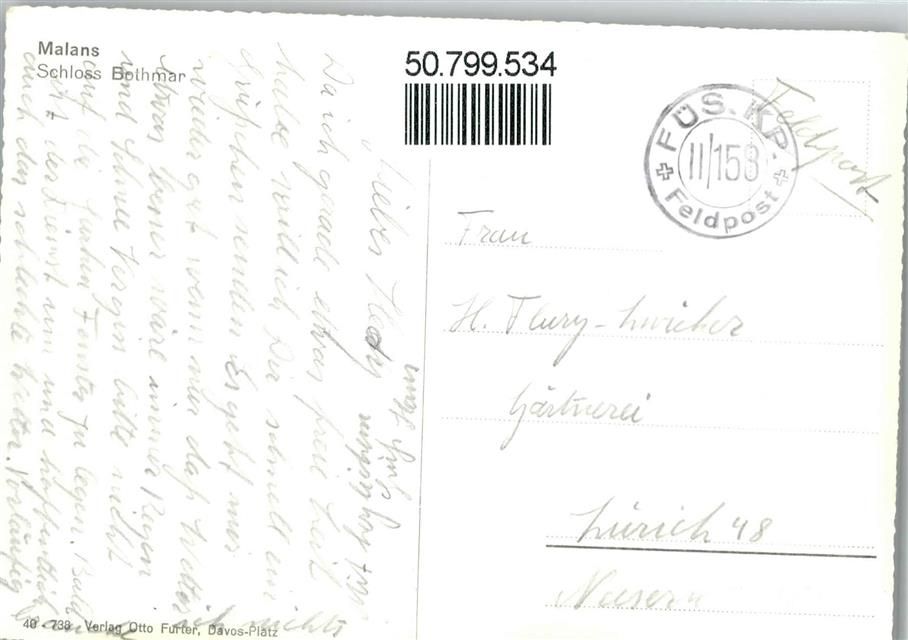 Malans
Schloss Bothmar
50.799.534
FÜS. KP.
II/158
Feldpost
Feldpost
Frau
H. Flury-Zwicker
Gärtnerei
Zürich 48
Liebes Hedy
Da ich gerade etwas frei Zeit
habe will ich Dir schnell ein
Grüsschen senden Es geht mir
wieder gut wenn nur das Wetter
etwas besser wäre immer Regen
und Schnee Vergiss bitte nicht
auf die Fenster zu legen. Bald
ist der Dienst um und hoffentlich
auch das schlechte Wetter. Vorläufig
nichts
40 - 738 Verlag Otto Furter, Davos-Platz